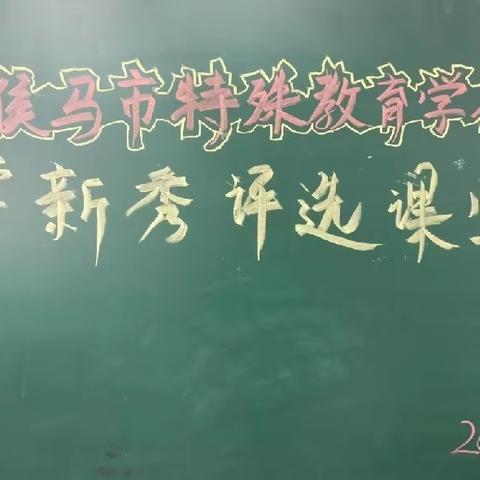 侯马市特殊教育学
新秀评选课
2